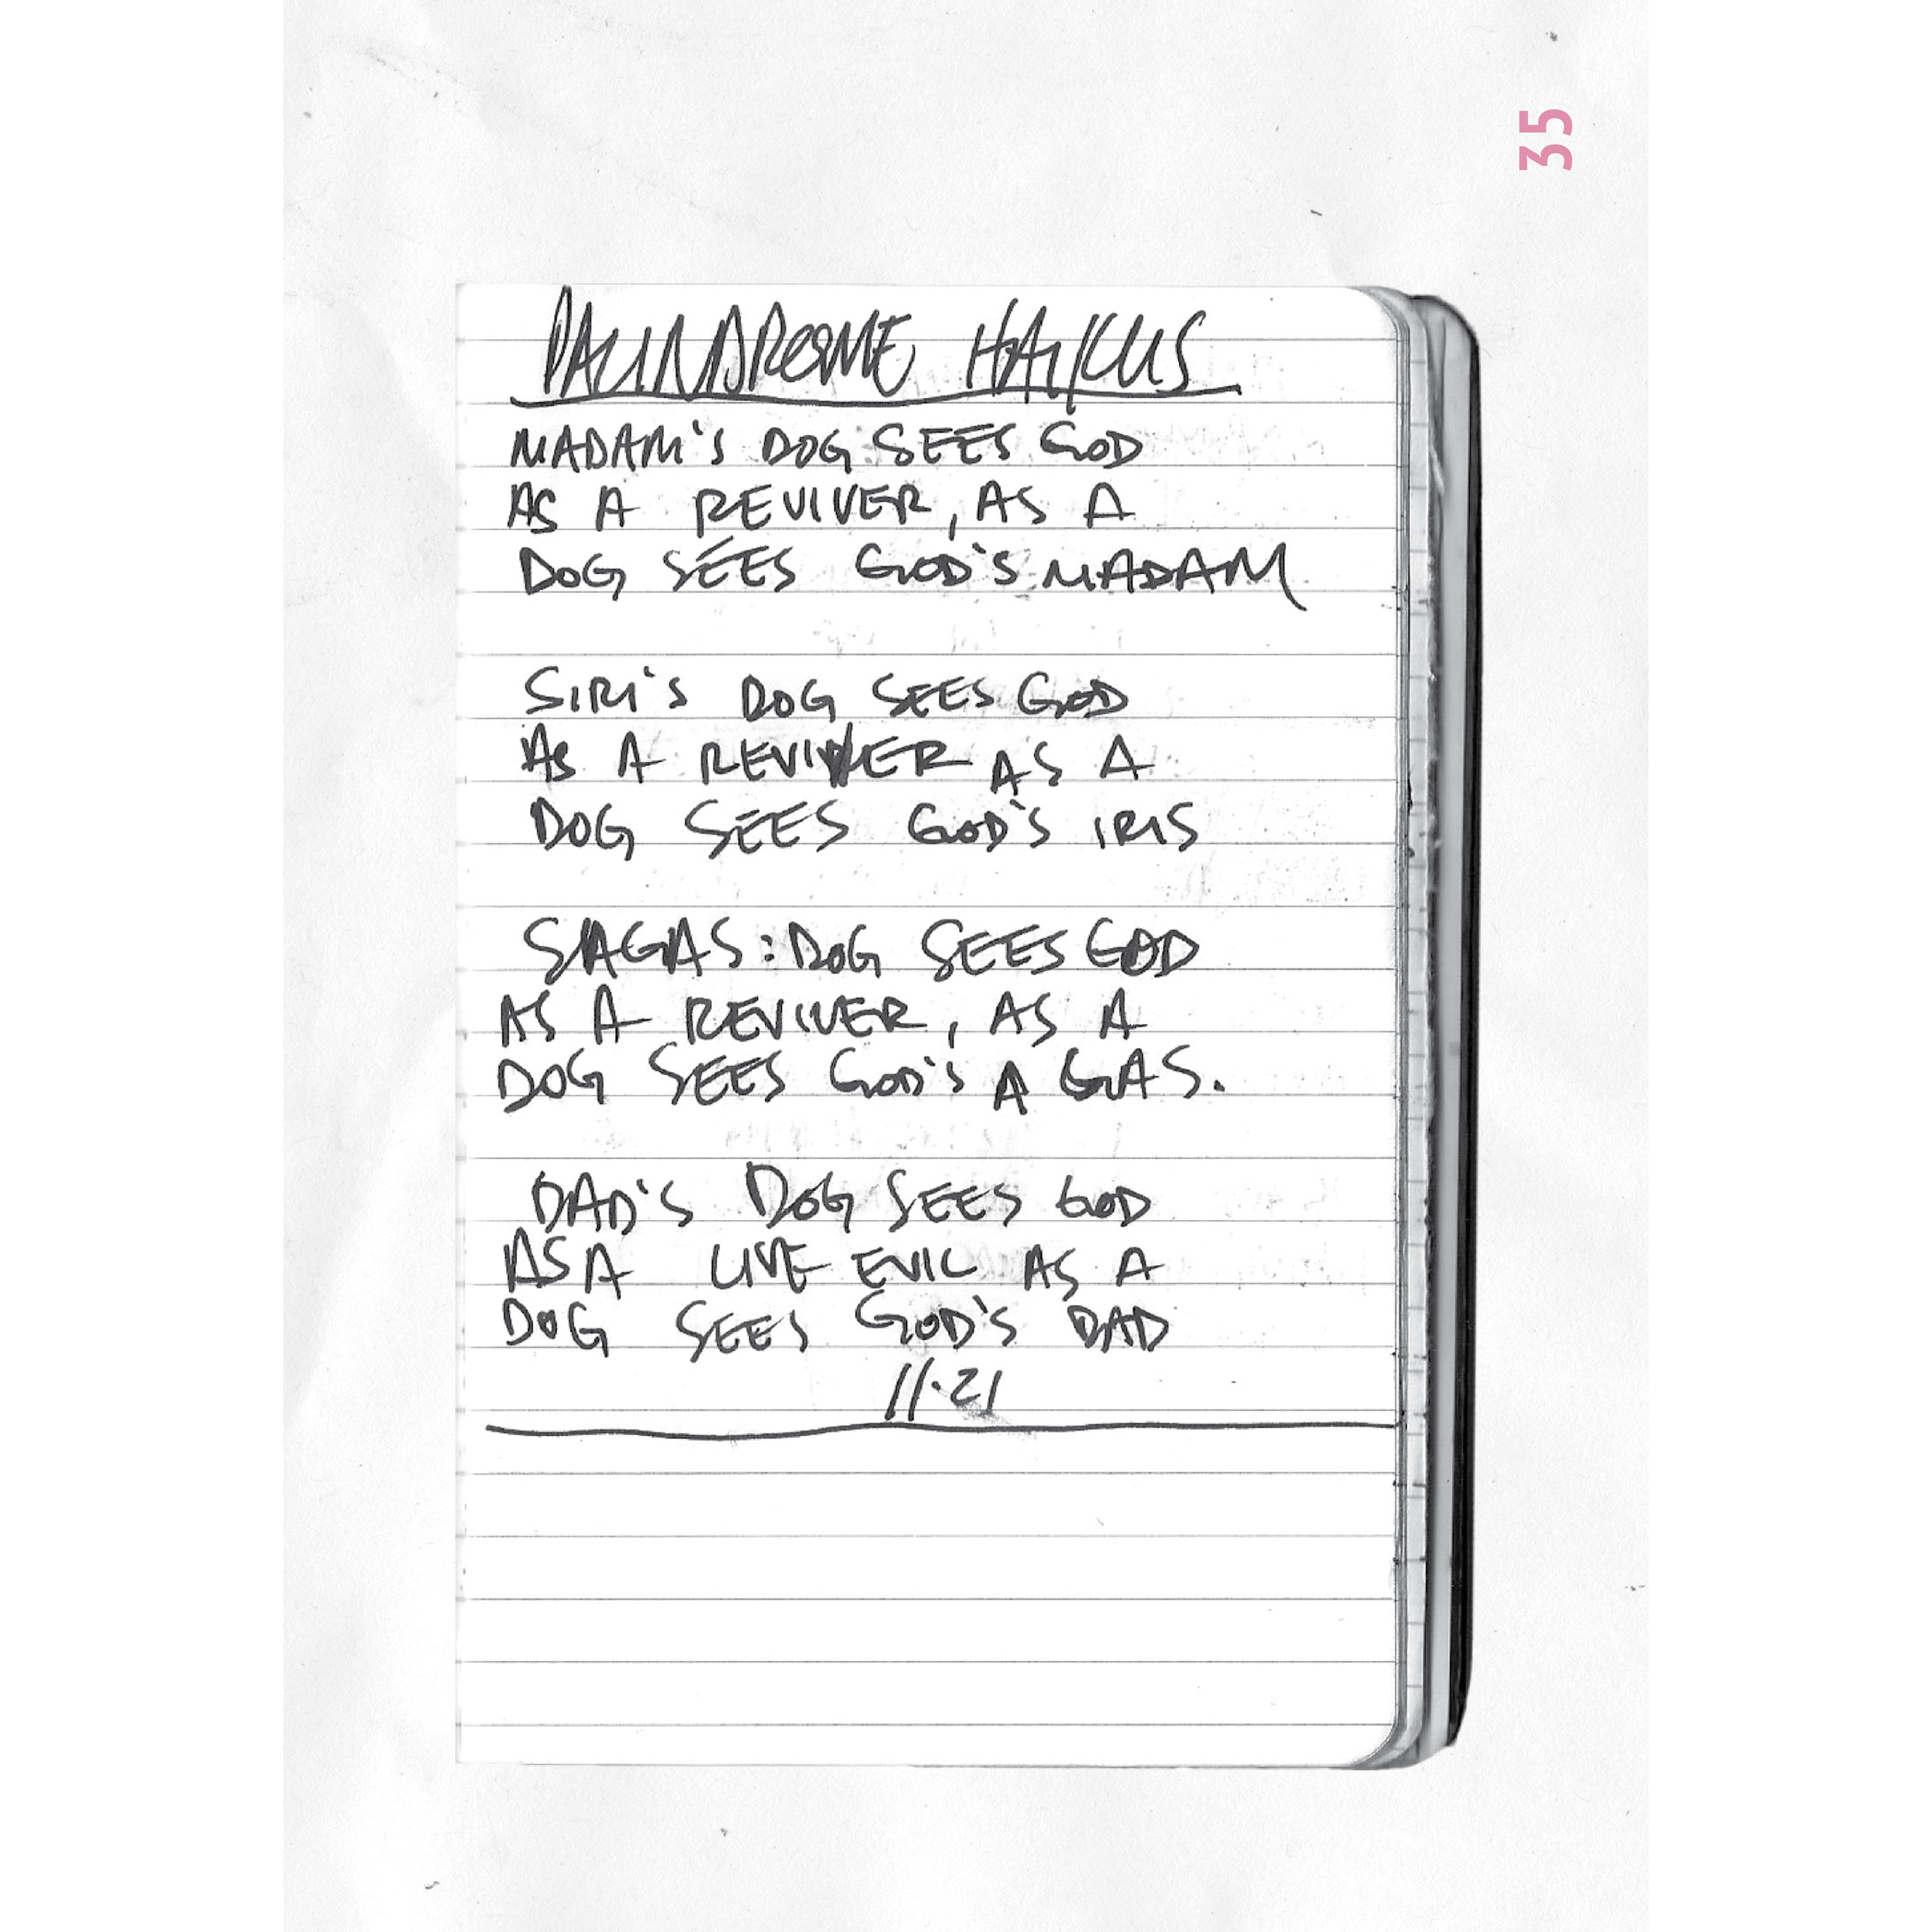 35
PALINDROME HAIKUS
MADAM'S DOG SEES GOD
AS A REVIVER, AS A
DOG SEES GOD'S MADAM
SIRI'S DOG SEES GOD
AS A REVIVER AS A
DOG SEES GOD'S IRIS
SAGAS: DOG SEES GOD
AS A REVIVER, AS A
DOG SEES GOD'S A GAS.
DAD'S DOG SEES GOD
AS A LIVE EVIL AS A
DOG SEES GOD'S DAD
11.21